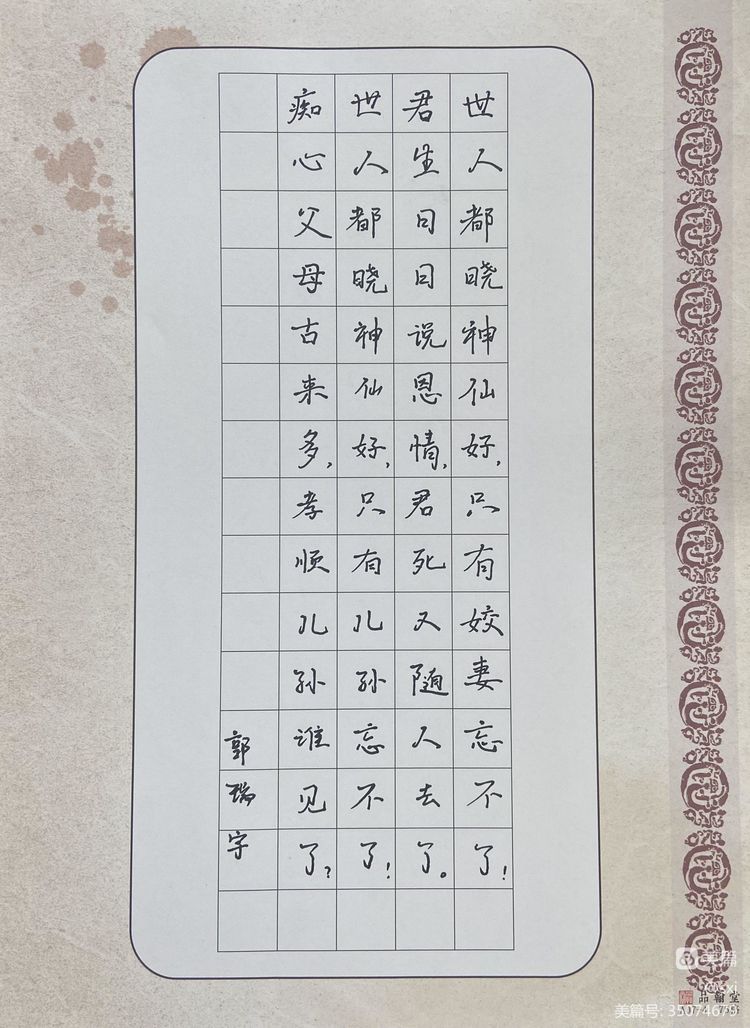 世人都晓神仙好,只有姣妻忘不了!
君生日日说恩情,君死又随人去了。
世人都晓神仙好,只有儿孙忘不了!
痴心父母古来多,孝顺儿孙谁见了?
郭瑞字
美篇
品翰堂
美篇号:35074679